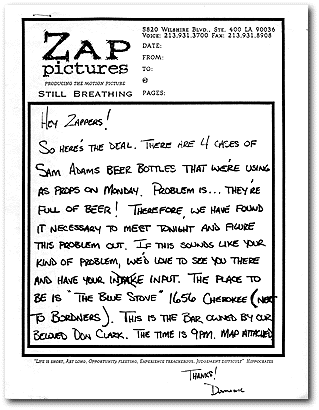 5820 Wilshire Blvd., Ste. 400 LA 90036
Voice: 213.931.3700 Fax: 213.931.8908
Zap
pictures
PRODUCING THE MOTION PICTURE
STILL BREATHING
DATE:
FROM:
TO:
PAGES:
HEY ZAPPERS!
SO HERE'S THE DEAL. THERE ARE 4 CASES OF
SAM ADAMS BEER BOTTLES THAT WE'RE USING
AS PROPS ON MONDAY. PROBLEM IS... THEY'RE
FULL OF BEER! THEREFORE, WE HAVE FOUND
IT NECESSARY TO MEET TONIGHT AND FIGURE
THIS PROBLEM OUT. IF THIS SOUNDS LIKE YOUR
KIND OF PROBLEM, WE'D LOVE TO SEE YOU THERE
AND HAVE YOUR INTAKE INPUT. THE PLACE TO
BE IS "THE BLUE STOVE" 1656 CHEROKEE (NEXT
TO BORDNERS). THIS IS THE BAR OWNED BY OUR
BELOVED DON CLARK. THE TIME IS 9PM. MAP ATTACHED
"LIFE IS SHORT, ART LONG, OPPORTUNITY FLEETING, EXPERIENCE TREACHEROUS, JUDGEMENT DIFFICULT" HIPPOCRATES
THANKS!